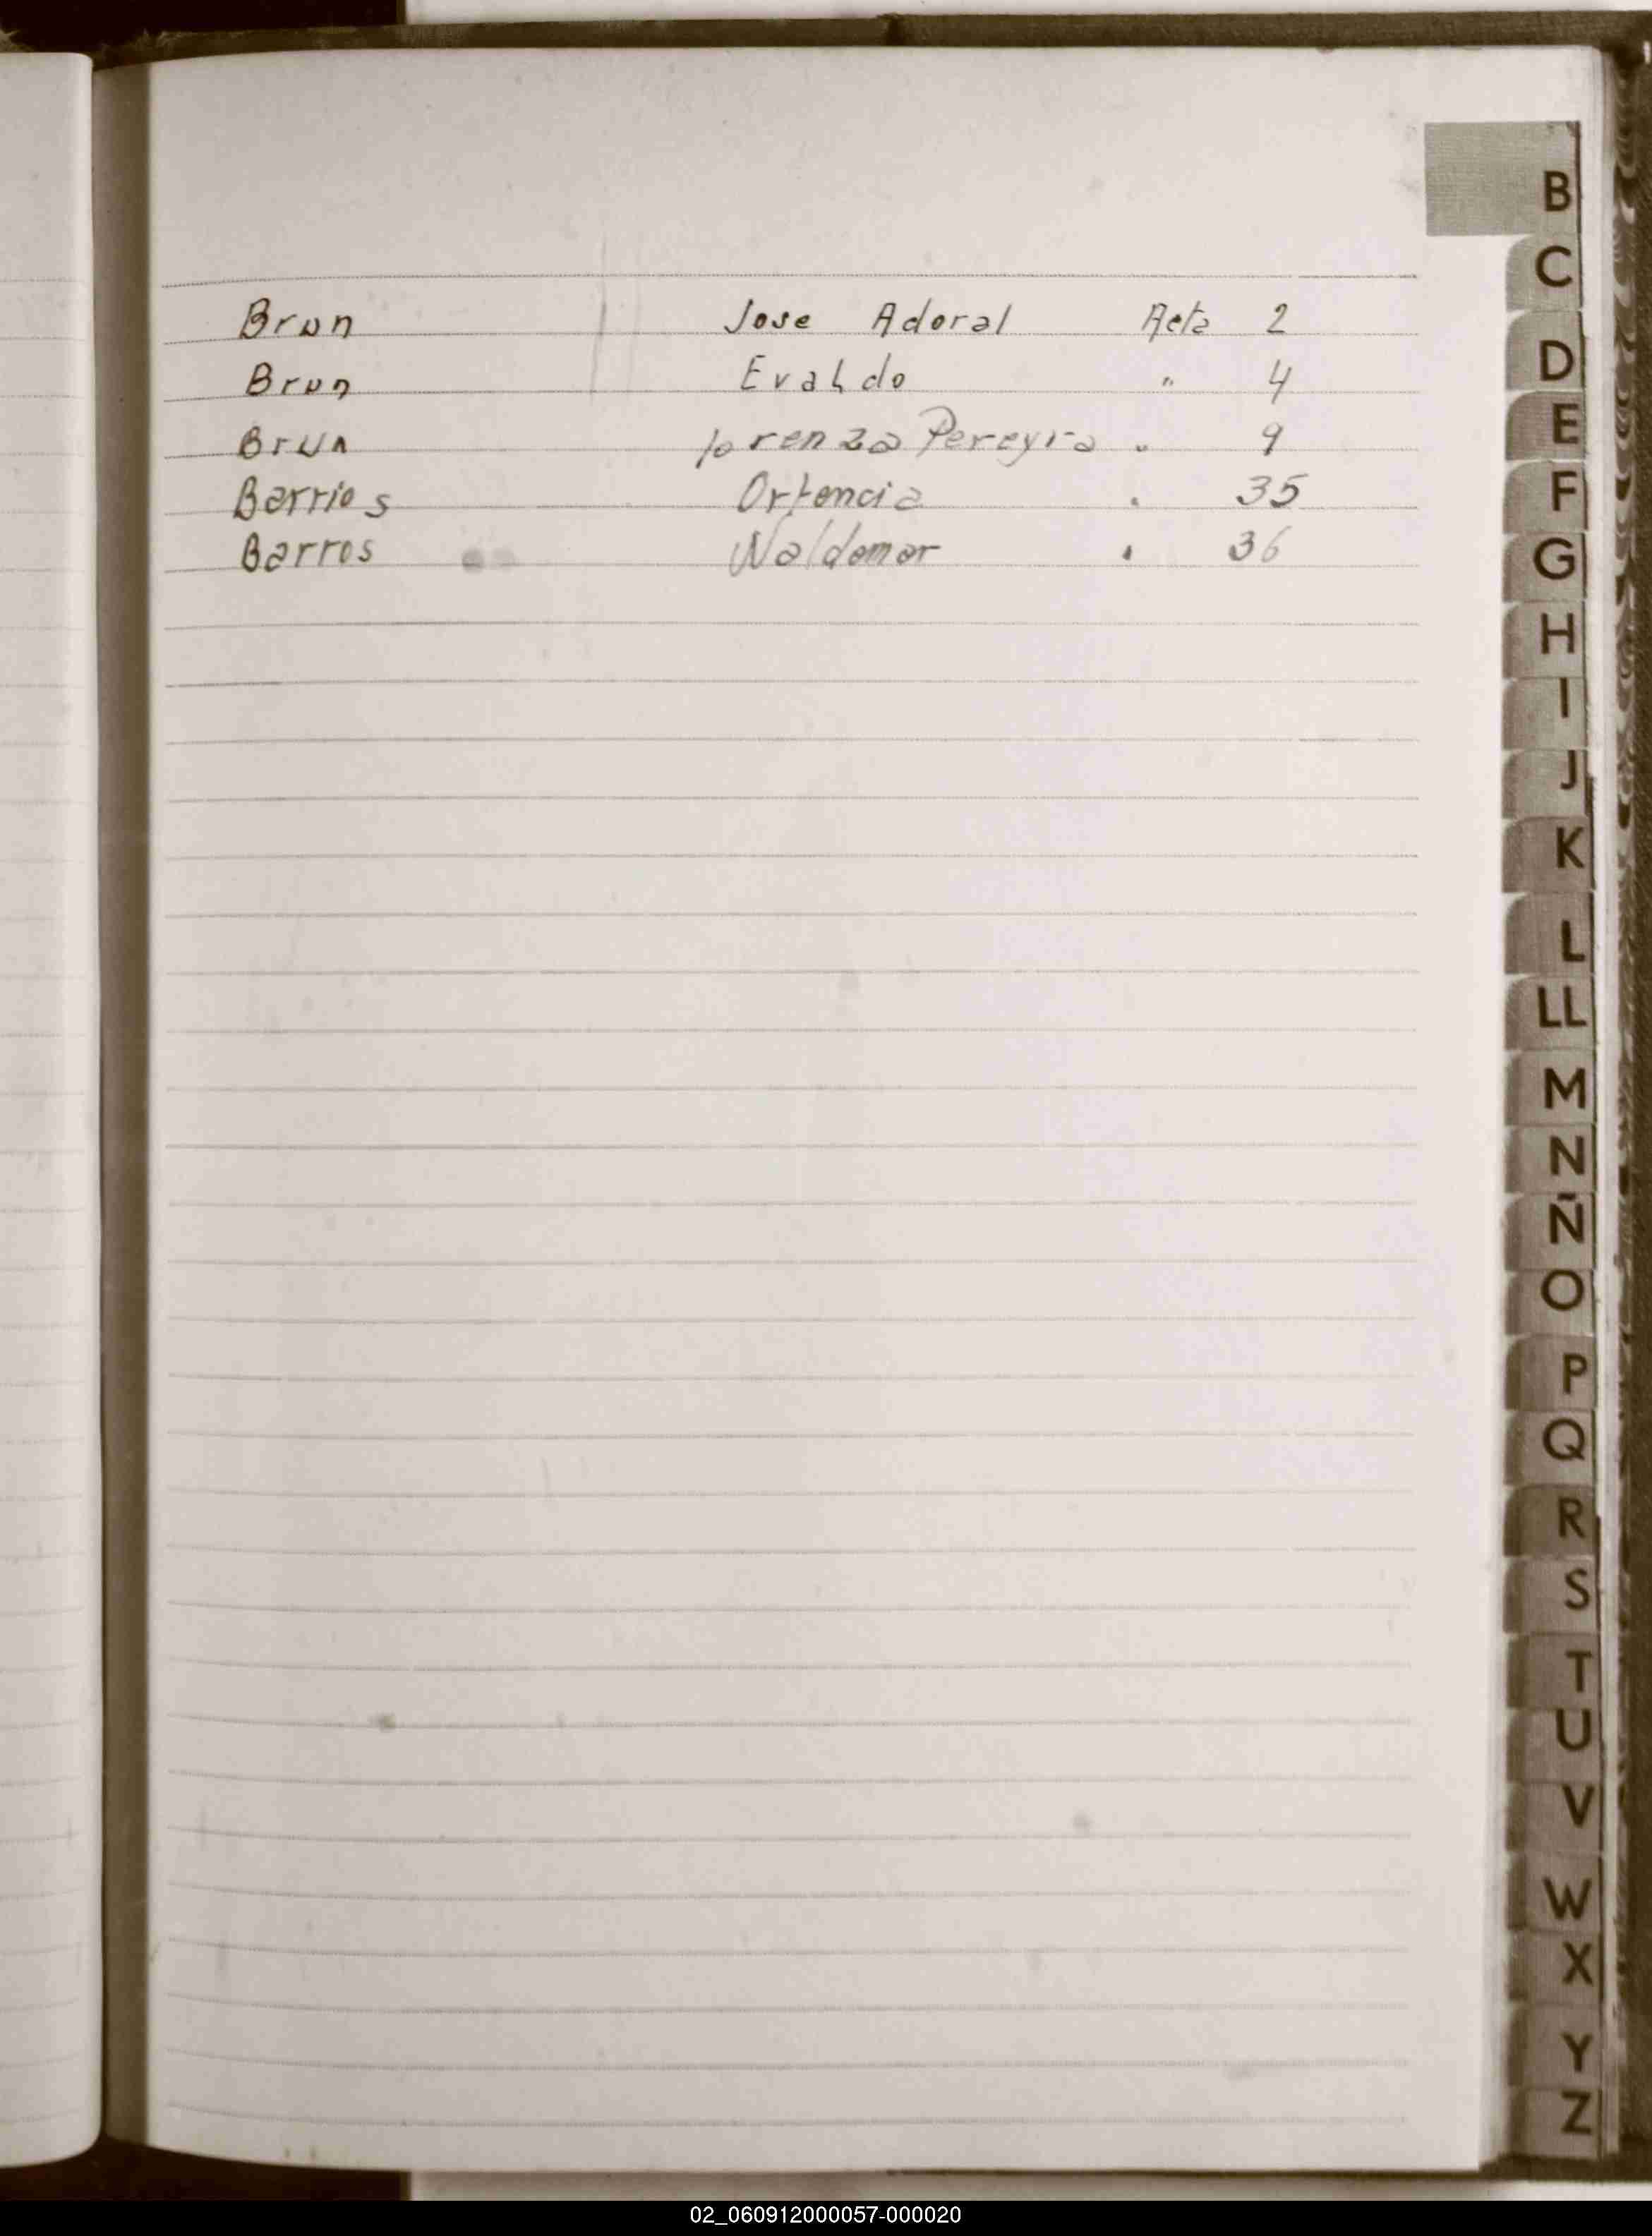 Brun Jose Adoral Acta 2
Brun Evaldo " 4
Brun lorenza Pereyra " 9
Barrios Ortencia " 35
Barros Waldemar " 36
B
C
D
E
F
G
H
I
J
K
L
LL
M
N
Ñ
O
P
Q
R
S
T
U
V
W
X
Y
Z
02_060912000057-000020